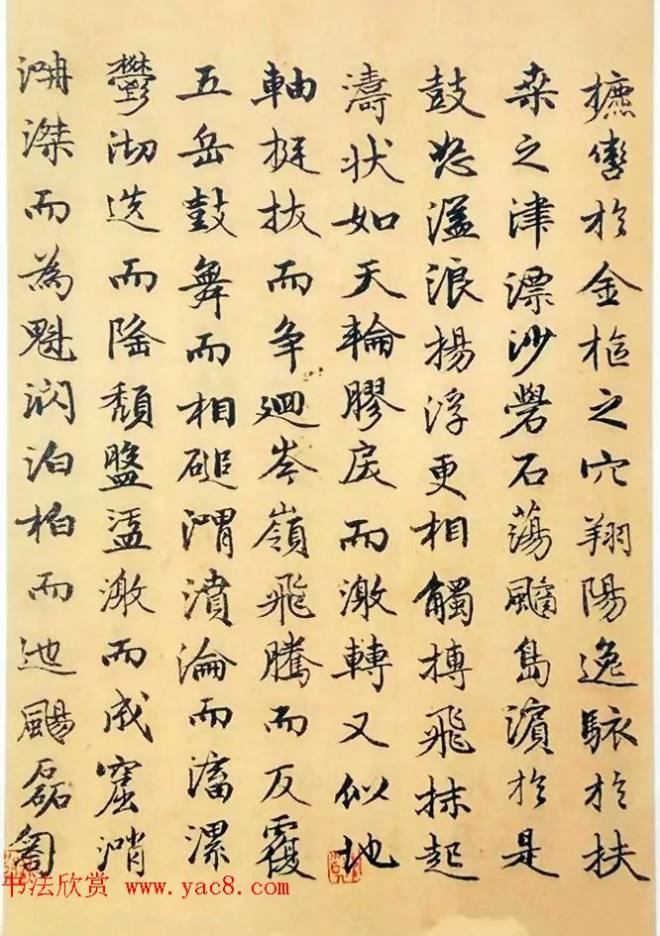 摭轡於金樞之穴翔陽逸駭於扶
桑之津漂沙礐石蕩䬍島濱於是
鼓怒溢浪揚浮更相觸搏飛沫起
濤状如天輪膠戾而激轉又似地
軸挺拔而争迴岑嶺飛騰而反覆
五岳鼓舞而相磓渭濆淪而滀漯
鬱沏迭而隆頹盤盓激而成窟消
淜滐而為魁㴸泊柏而迆颺磊匒
书法欣赏 www.yac8.com